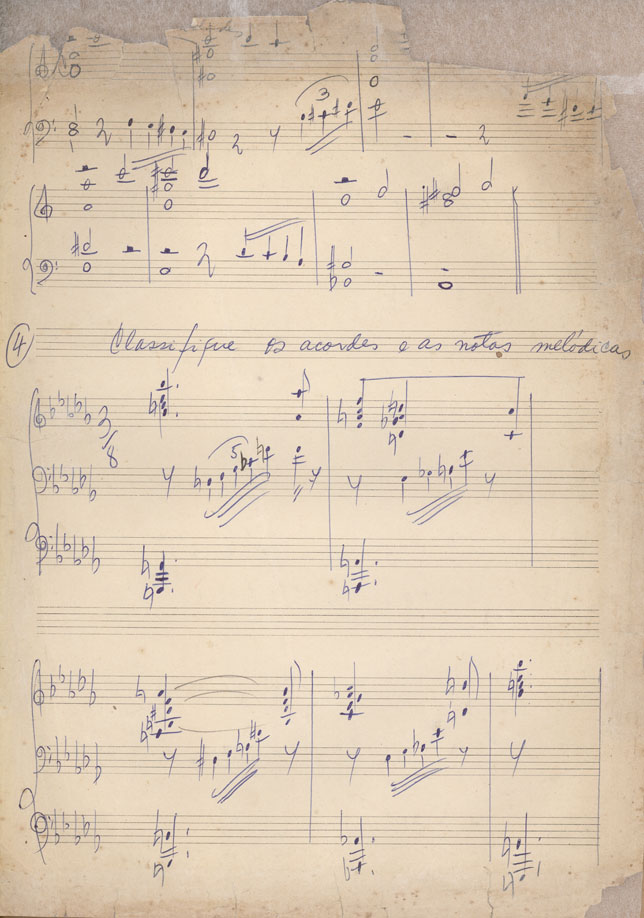 3
4 Classifique os acordes e as notas melódicas
3/8
5